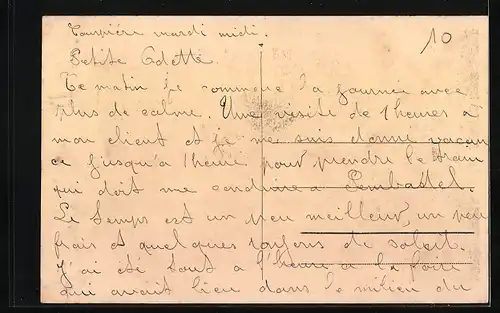 Laupière mardi midi.
10
Petite Odette
Ce matin je commence la journée avec
plus de calme. Une visite de 2 heures a
mon client et je me suis donné vacan
ce jusqu'a 1 heure pour prendre le train
qui doit me conduire a
Le temps est un peu meilleur, un peu
frais et quelques rayons de soleil.
J'ai été tout a l'heure a la foire
qui avait lieu dans le milieu du